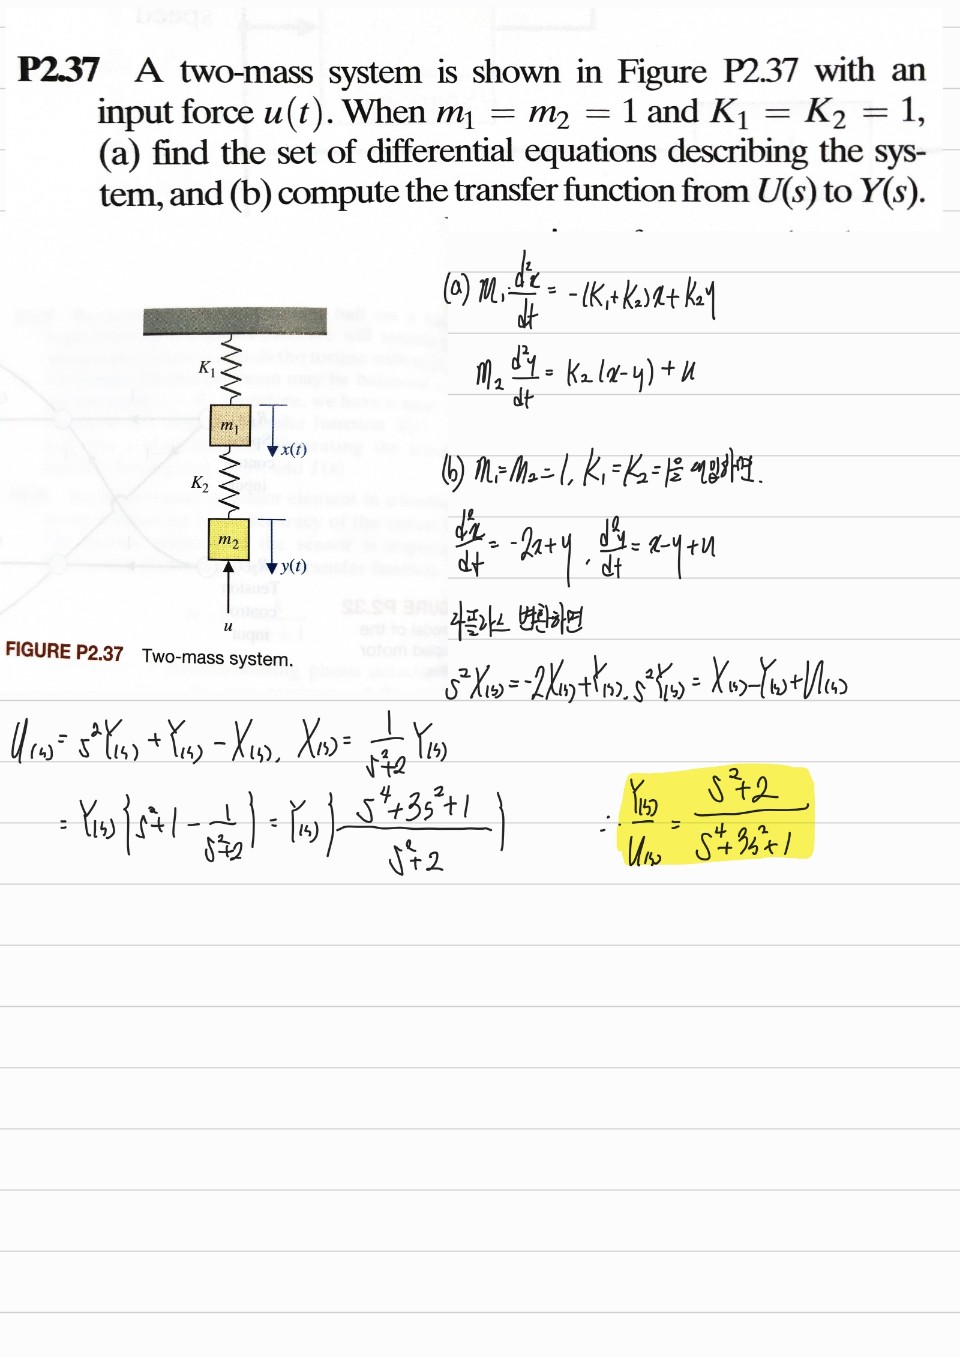 P2.37 A two-mass system is shown in Figure P2.37 with an
input force u(t). When m₁ = m₂ = 1 and K₁ = K₂ = 1,
(a) find the set of differential equations describing the sys-
tem, and (b) compute the transfer function from U(s) to Y(s).
K₁
m₁
x(t)
K₂
m₂
y(t)
u
FIGURE P2.37 Two-mass system.
(a) m₁ d²x/dt = -(K₁+K₂)x + K₂y
m₂ d²y/dt = K₂(x-y) + u
(b) m₁=m₂=1, K₁=K₂=1을 대입하면.
d²x/dt = -2x+y, d²y/dt = x-y+u
라플라스 변환하면
s²X(s) = -2X(s)+Y(s), s²Y(s) = X(s)-Y(s)+U(s)
U(s) = s²Y(s) + Y(s) - X(s), X(s) = 1/(s²+2) Y(s)
= Y(s){s²+1 - 1/(s²+2)} = Y(s){(s⁴+3s²+1)/(s²+2)}
∴ Y(s)/U(s) = (s²+2)/(s⁴+3s²+1)